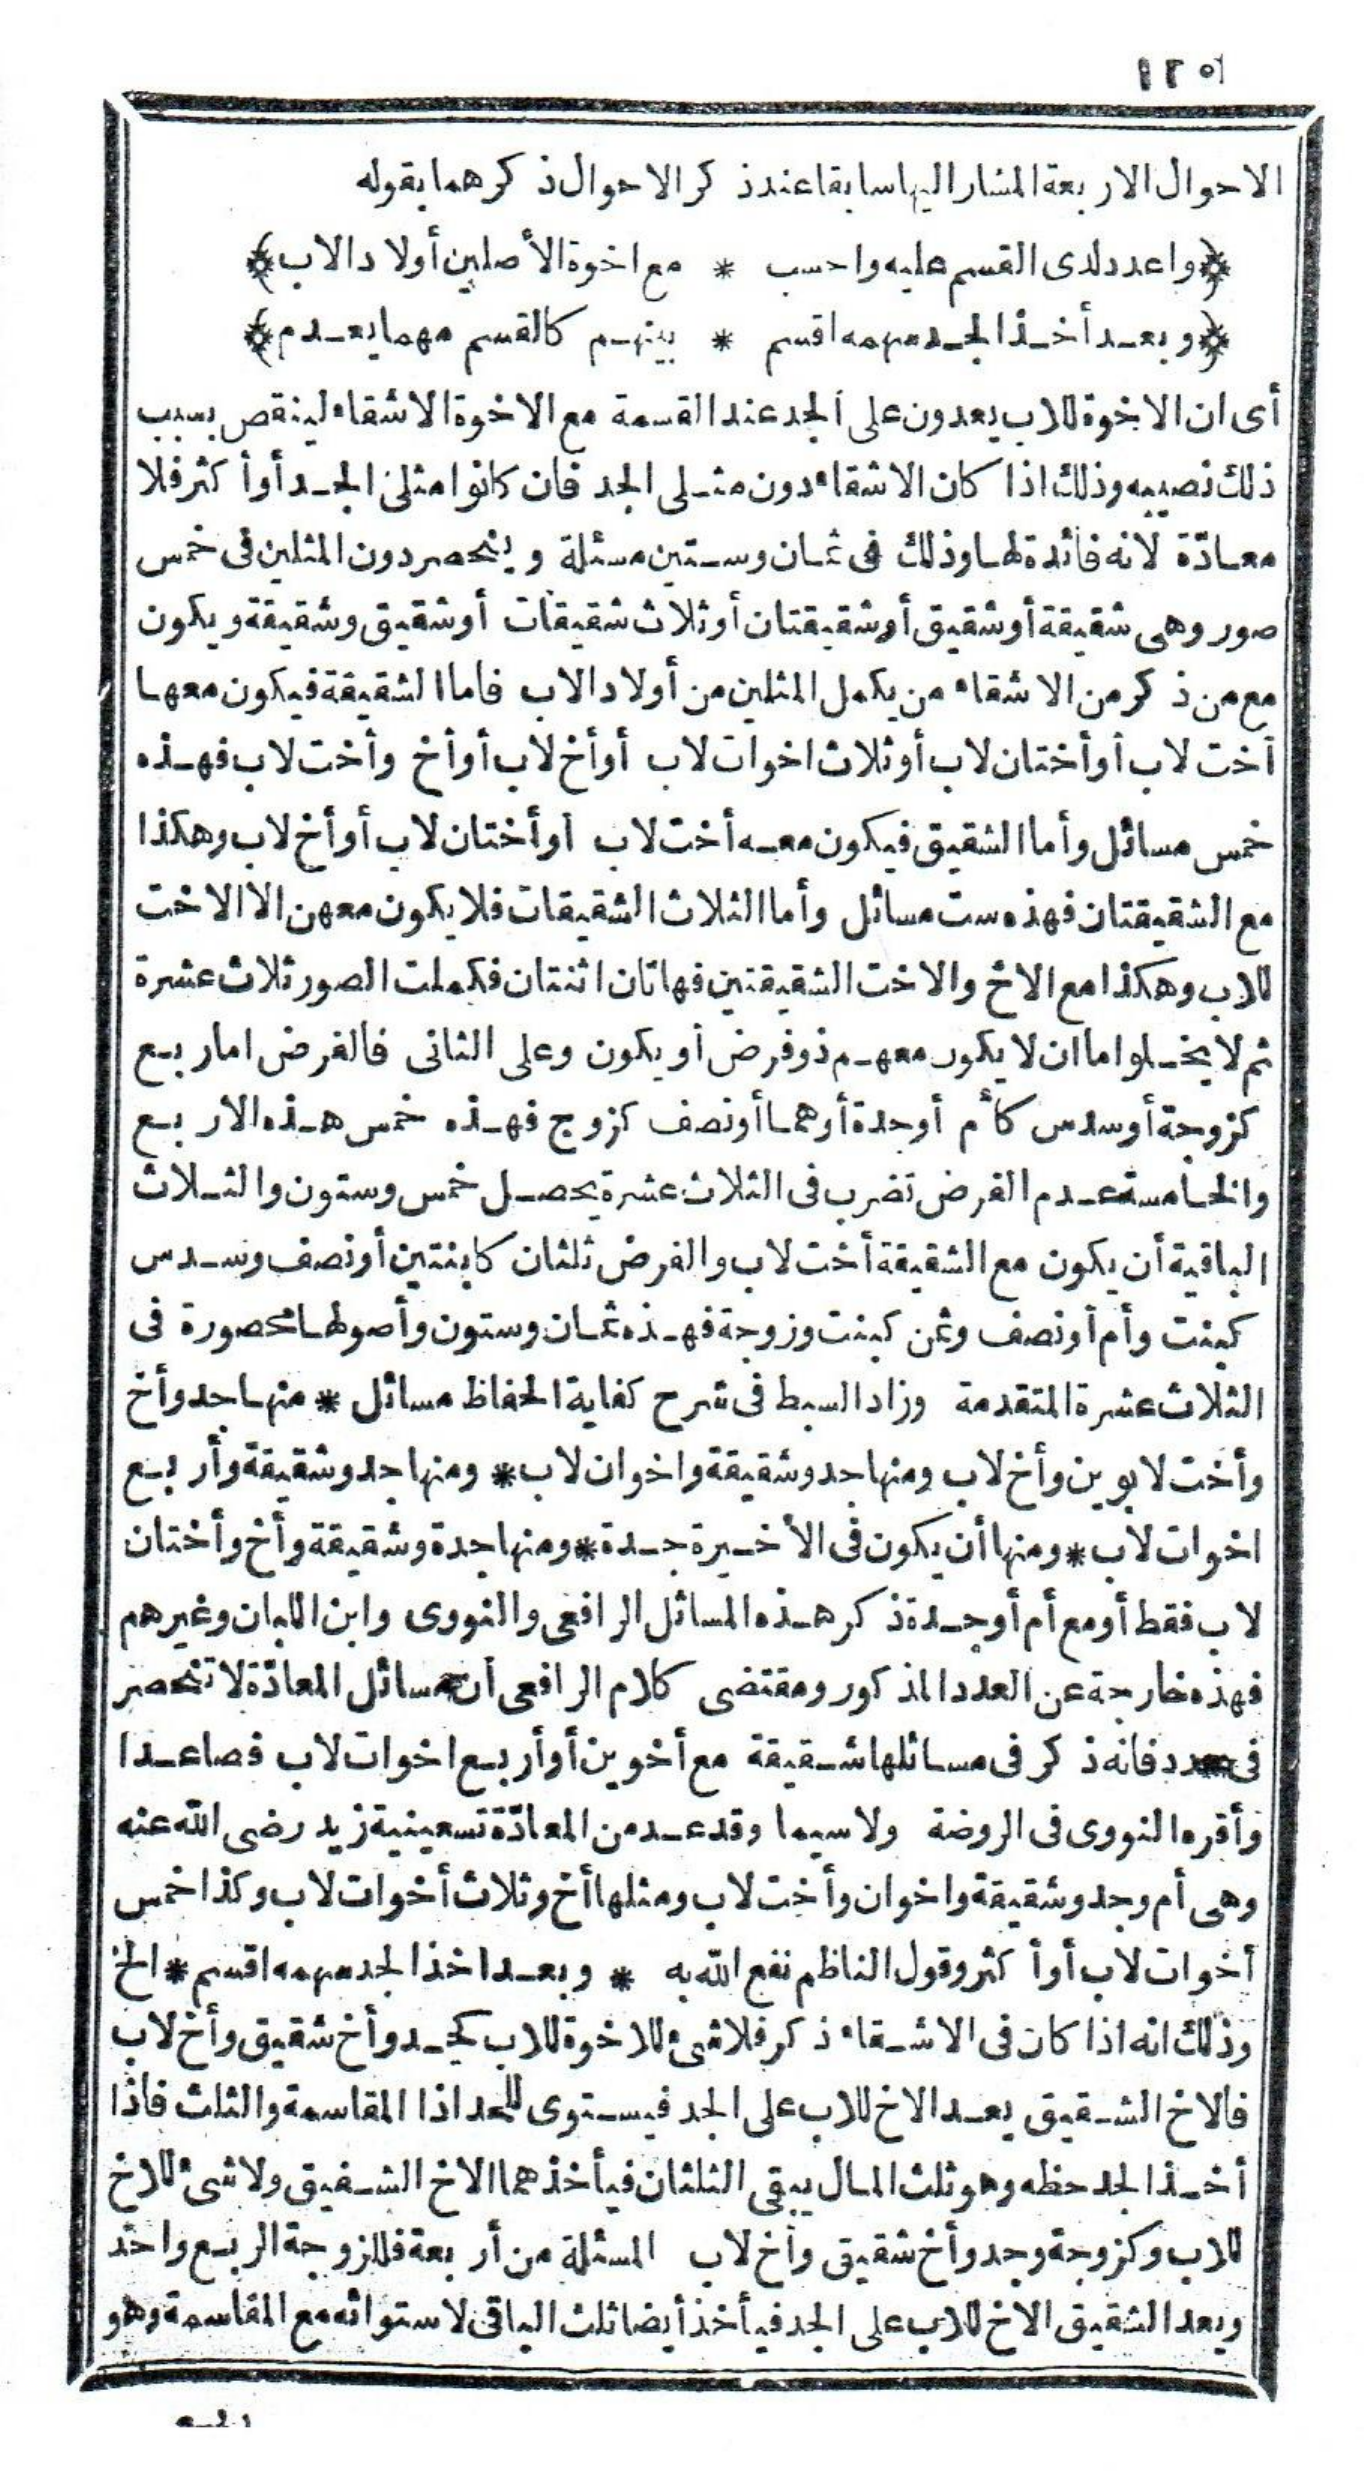 ١٢٥
الاحوال الاربعة المشار اليها سابقا عند ذكر الاحوال ذكرهما بقوله
﴿واعدد لدى القسم عليه واحسب * مع اخوة الأصلين أولاد الاب﴾
﴿وبعد أخذ الجد سهمه اقسم * بينهم كالقسم مهما يعدم﴾
أى ان الاخوة للاب يعدون على الجد عند القسمة مع الاخوة الاشقاء لينقص بسبب
ذلك نصيبه وذلك اذا كان الاشقاء دون مثلى الجد فان كانوا مثلى الجد أو أكثر فلا
معادّة لانه فائدة لها وذلك فى ثمان وستين مسئلة وينحصر دون المثلين فى خمس
صور وهى شقيقة أو شقيق أو شقيقتان أو ثلاث شقيقات أو شقيق وشقيقة ويكون
مع من ذكر من الاشقاء من يكمل المثلين من أولاد الاب فاما الشقيقة فيكون معها
أخت لاب أو أختان لاب أو ثلاث اخوات لاب أو أخ لاب أو أخ وأخت لاب فهذه
خمس مسائل وأما الشقيق فيكون معه أخت لاب أو أختان لاب أو أخ لاب وهكذا
مع الشقيقتان فهذه ست مسائل وأما الثلاث الشقيقات فلا يكون معهن الا الاخت
للاب وهكذا مع الاخ والاخت الشقيقتين فهاتان اثنتان فكملت الصور ثلاث عشرة
ثم لا يخلو اما ان لا يكون معهم ذو فرض أو يكون وعلى الثانى فالفرض اما ربع
كزوجة أو سدس كأم أو جدة أو هما أو نصف كزوج فهذه خمس هذه الاربع
والخامسة عدم الفرض تضرب فى الثلاث عشرة يحصل خمس وستون والثلاث
الباقية أن يكون مع الشقيقة أخت لاب والفرض ثلثان كابنتين أو نصف وسدس
كبنت وأم أو نصف وثمن كبنت وزوجة فهذه ثمان وستون وأصولها محصورة فى
الثلاث عشرة المتقدمة وزاد السبط فى شرح كفاية الحفاظ مسائل * منها جد وأخ
وأخت لابوين وأخ لاب ومنها جد وشقيقة واخوان لاب * ومنها جد وشقيقة وأربع
اخوات لاب * ومنها أن يكون فى الأخيرة جدة * ومنها جدة وشقيقة وأخ وأختان
لاب فقط أو مع أم أو جدة ذكر هذه المسائل الرافعى والنووى وابن اللبان وغيرهم
فهذه خارجة عن العدد المذكور ومقتضى كلام الرافعى أن مسائل المعادّة لا تنحصر
فى عدد فانه ذكر فى مسائلها شقيقة مع أخوين أو أربع اخوات لاب فصاعدا
وأقره النووى فى الروضة ولا سيما وقد عد من المعادّة تسعينية زيد رضى الله عنه
وهى أم وجد وشقيقة واخوان وأخت لاب ومثلها أخ وثلاث أخوات لاب وكذا خمس
أخوات لاب أو أكثر وقول الناظم نفع الله به * وبعد اخذ الجد سهمه اقسم * الخ
وذلك انه اذا كان فى الاشقاء ذكر فلا شئ للاخوة للاب كجد وأخ شقيق وأخ لاب
فالاخ الشقيق يعد الاخ للاب على الجد فيستوى للجد اذا المقاسمة والثلث فاذا
أخذ الجد حظه وهو ثلث المال يبقى الثلثان فيأخذهما الاخ الشقيق ولا شئ للاخ
للاب وكزوجة وجد وأخ شقيق وأخ لاب المسئلة من أربعة فللزوجة الربع واحد
ويعد الشقيق الاخ للاب على الجد فيأخذ أيضا ثلث الباقى لاستوائه مع المقاسمة وهو